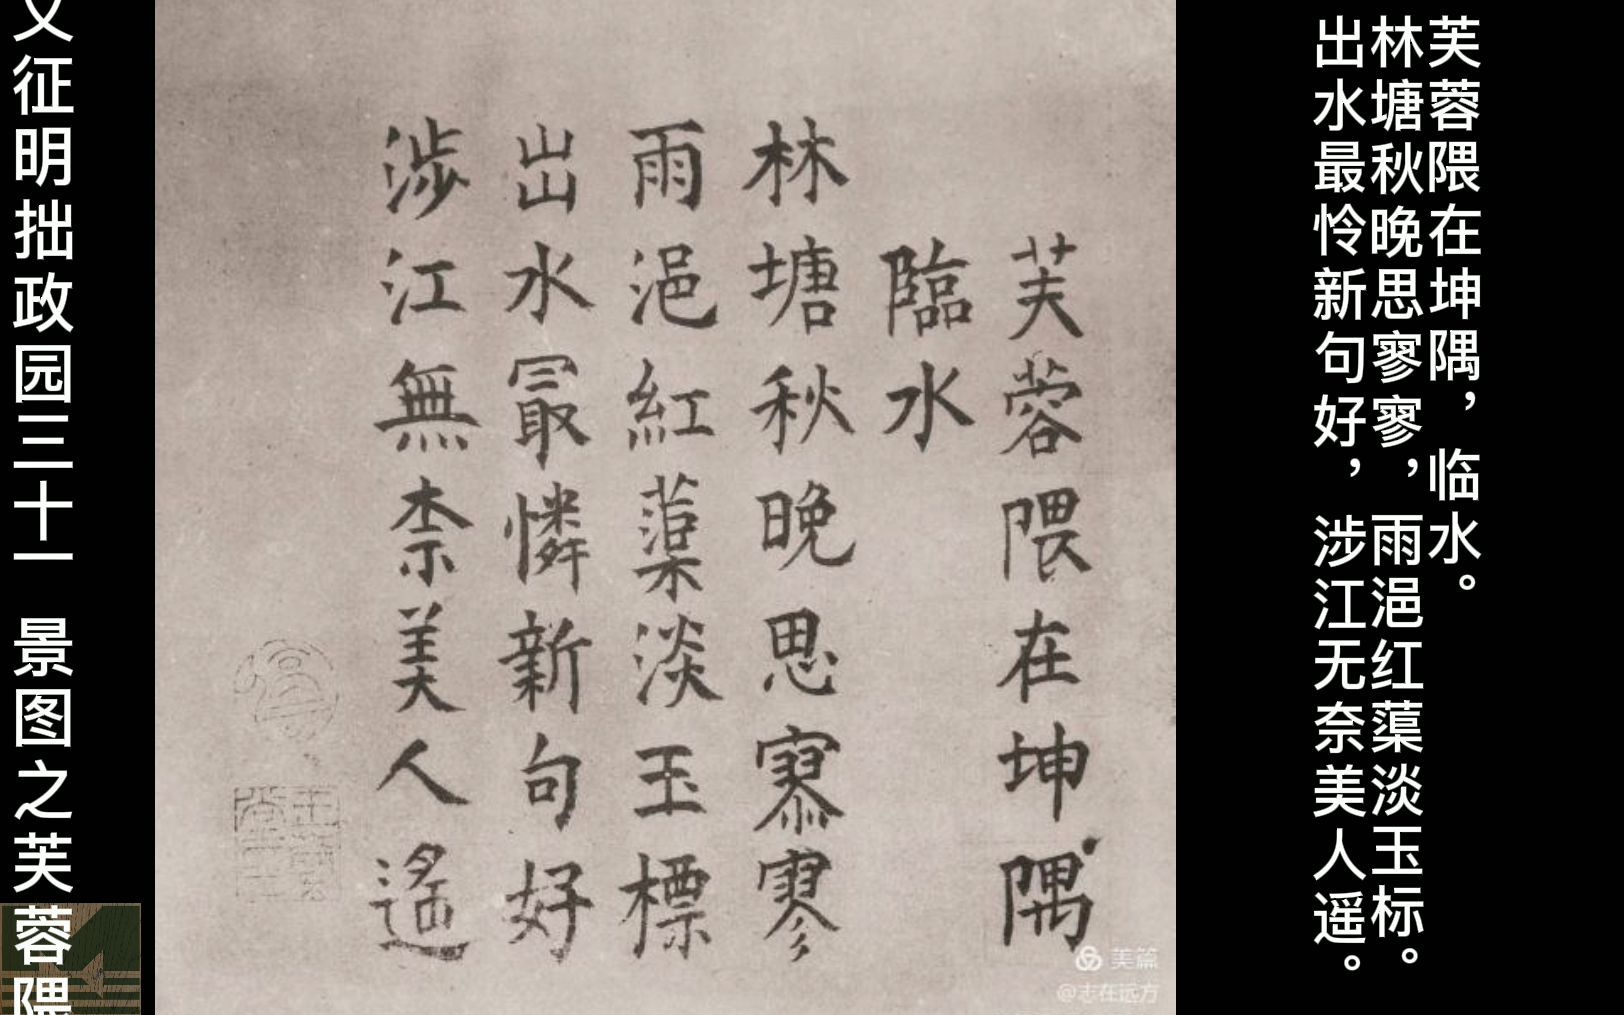 芙蓉隈在坤隅，临水。
林塘秋晚思寥寥，雨浥红蕖淡玉标。
出水最怜新句好，涉江无奈美人遥。
芙蓉隈在坤隅
臨水
林塘秋晚思寥寥
雨浥紅蕖淡玉標
出水最憐新句好
涉江無柰美人遙
文征明拙政园三十一 景图之芙蓉隈
美篇
@志在远方